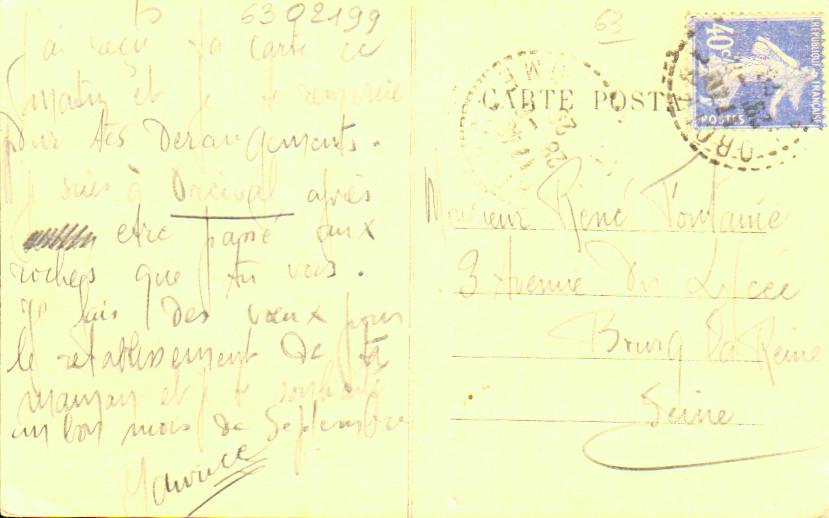 63 02199
J'ai reçu ta carte ce
matin et je te remercie
pour tes derangements.
Je suis à Orcival après
etre passé aux
roches que tu vois.
Je fais des vœux pour
le retablissement de ta
maman et je te souhaite
un bon mois de Septembre
Maurice
63
CARTE POSTA
40c
REPUBLIQUE FRANÇAISE
POSTES
Monsieur René
3 Avenue du Lycée
Bourg la Reine
Seine